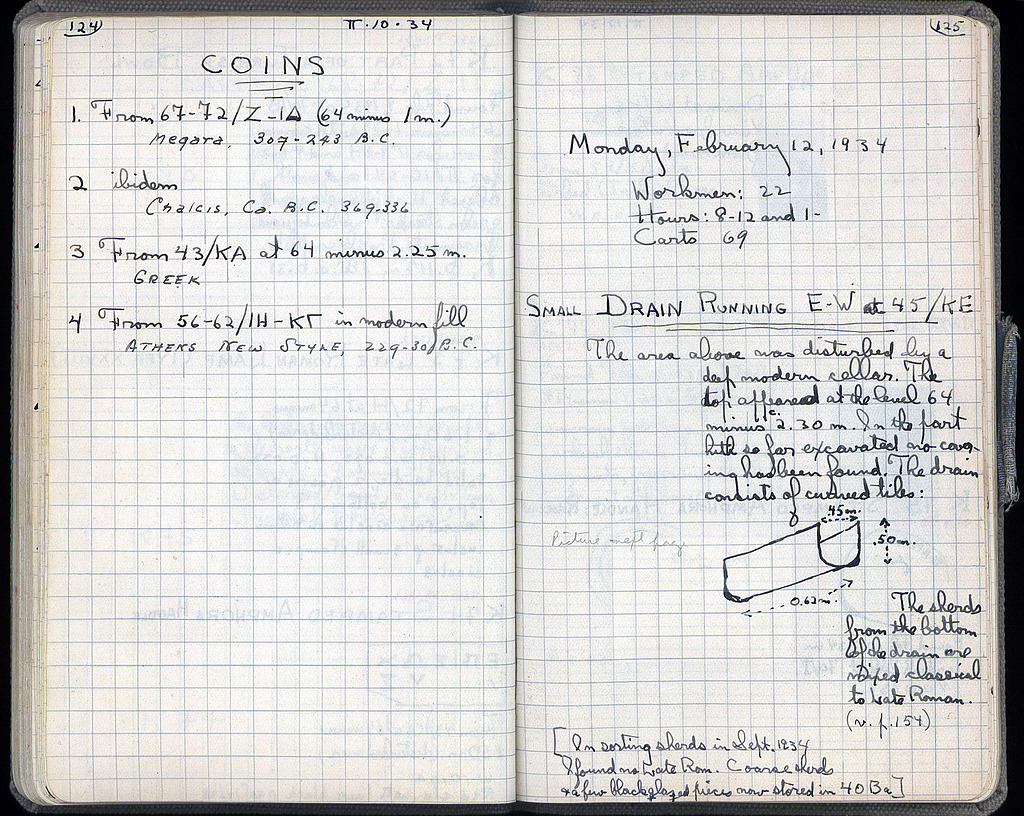 124
II·10·34
COINS
1. From 67-72/Z-IΔ (64 minus 1m.)
Megara, 307-243 B.C.
2 ibidem
Chalcis, Ca. B.C. 369-336
3 From 43/KA at 64 minus 2.25 m.
GREEK
4 From 56-62/IH-KΓ in modern fill
ATHENS NEW STYLE, 229-30 B.C.
125
Monday, February 12, 1934
Workmen: 22
Hours: 8-12 and 1-
Carts 69
SMALL DRAIN RUNNING E-W at 45/KE
The area above was disturbed by a
deep modern cellar. The
top appeared at the level 64
minus c. 2.30 m. In the part
so far excavated no cover-
ing has been found. The drain
consists of curved tiles:
.45m.
.50m.
Picture next page
0.62m.
The sherds
from the bottom
of the drain are
mixed classical
to Late Roman.
(v. p. 154)
[In sorting sherds in Sept. 1934
I found no Late Rom. Coarse sherds
& a few black glazed pieces now stored in 40 Ba]